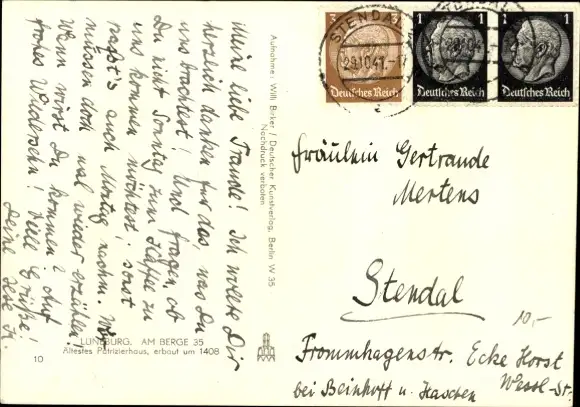 Meine liebe Traude! Ich wollte Dir
herzlich danken für das was Du
uns brachtest! Und fragen, ob
Du nicht Sonntag zum Kaffee zu
uns kommen möchtest, sonst
paßt's auch Montag nachm. Wir
müssen doch mal wieder erzählen!
Wann wirst Du kommen? Auf
frohes Wiedersehn! Viele Grüße!
Deine Ilse K.
LÜNEBURG. AM BERGE 35
Ältestes Patrizierhaus, erbaut um 1408
10
Aufnahme: Willi Beker / Deutscher Kunstverlag, Berlin W 35
Nachdruck verboten
STENDAL
29.10.41.-17
c
3
Deutsches Reich
1 1
Deutsches Reich
1 1
Deutsches Reich
Fräulein Gertraude
Mertens
Stendal
10,-
Frommhagenstr. Ecke Horst
Wessl-Str.
bei Beinhoff u.